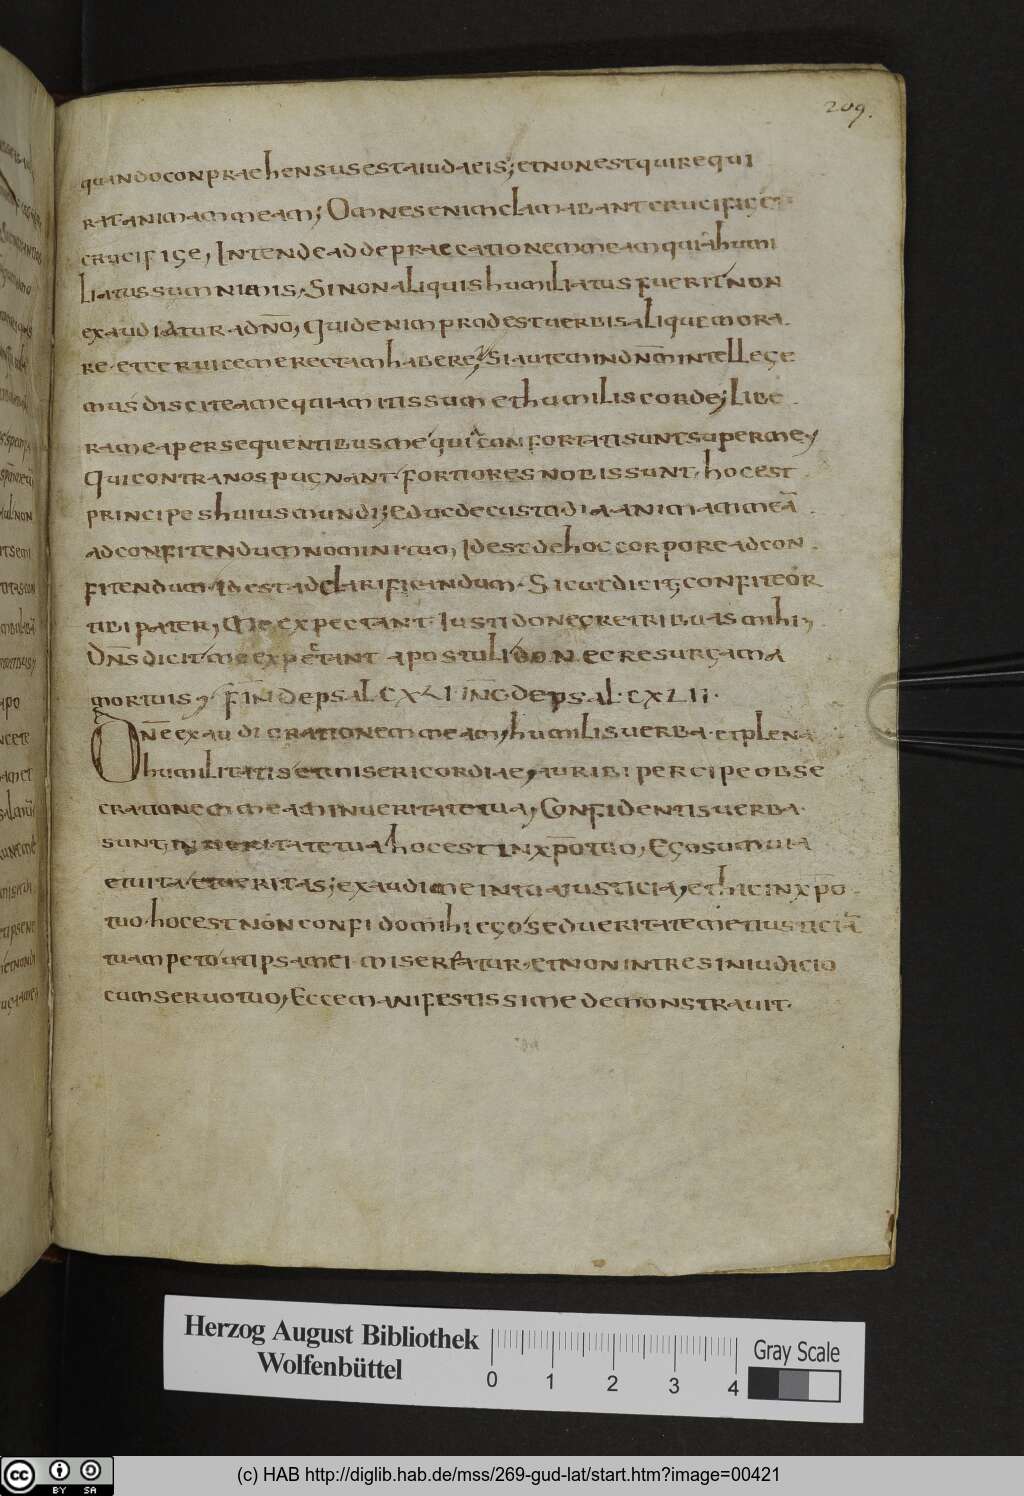 209.
quando conpraehensus est a iudaeis; et non est qui requi
rat animam meam; Omnes enim clamabant crucifige
crucifige, Intende ad depraecationem meam quia humi
liatus sum nimis, Si non aliquis humiliatus fuerit non
exaudiatur ad dño, Quid enim prodest uerbis aliquem ora
re et ceruicem erectam habere, Si autem in dñm intellege
mus discite a me quia mitis sum et humilis corde; libe
ra me a persequentibus me quia confortati sunt super me,
Qui contra nos pugnant fortiores nobis sunt, hoc est
principes huius mundi; Educ de custodia animam meã
ad confitendum nomini tuo, Id est de hoc corpore ad con
fitendum id est ad clarificandum. Sicut dicit, confiteor
tibi pater, Me expectant iusti donec retribuas mihi,
Dñs dicit me expectant apostuli donec resurgam a
mortuis, fiñ de psal CXLI iñc de psal. CXLII.
Dñe exaudi orationem meam, humilis uerba et plena
humilitatis et misericordiae, auribi percipe obse
crationem meam in ueritate tua, Confidentis uerba
sunt, in ueritate tua hoc est in xp̃o tuo, Ego sum uia
et uita et ueritas; exaudi me in tua iusticia, et hic in xp̃o
tuo. hoc est non confido mihi ego sed ueritatem et iusticiã
tuam peto ut ipsa mei misereatur, et non intres in iudicio
cum seruo tuo, Ecce manifestissime demonstrauit.
Herzog August Bibliothek
Wolfenbüttel
0 1 2 3 4
Gray Scale
cc BY SA
(c) HAB http://diglib.hab.de/mss/269-gud-lat/start.htm?image=00421